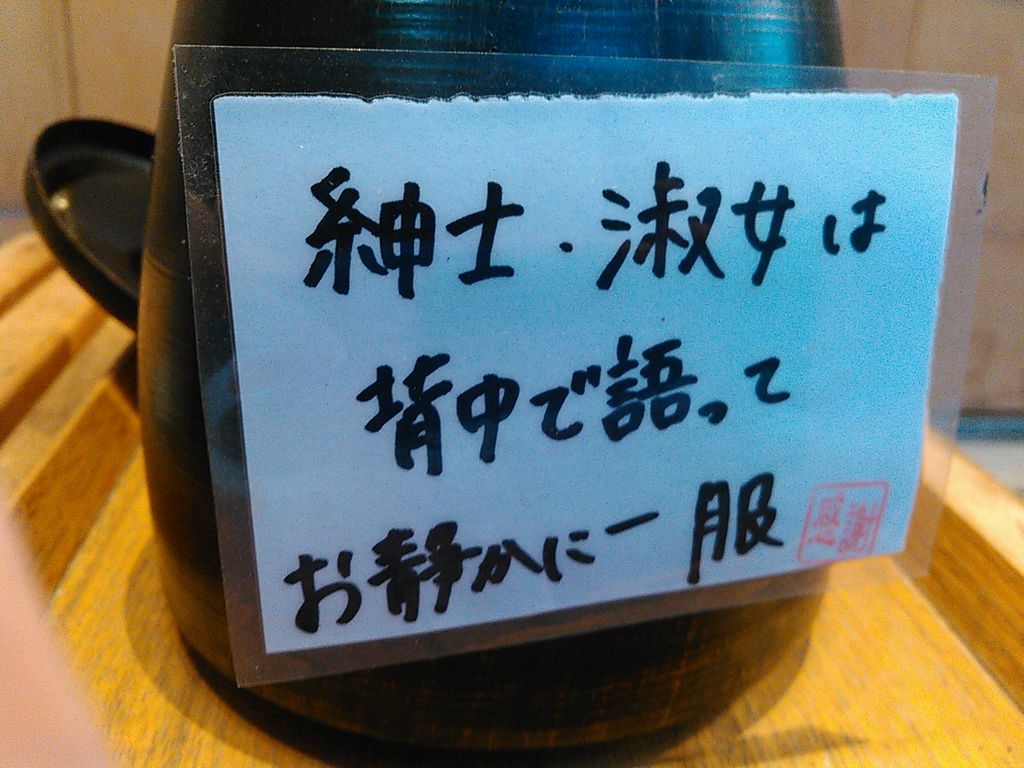 紳士・淑女は
背中で語って
お静かに一服
感謝